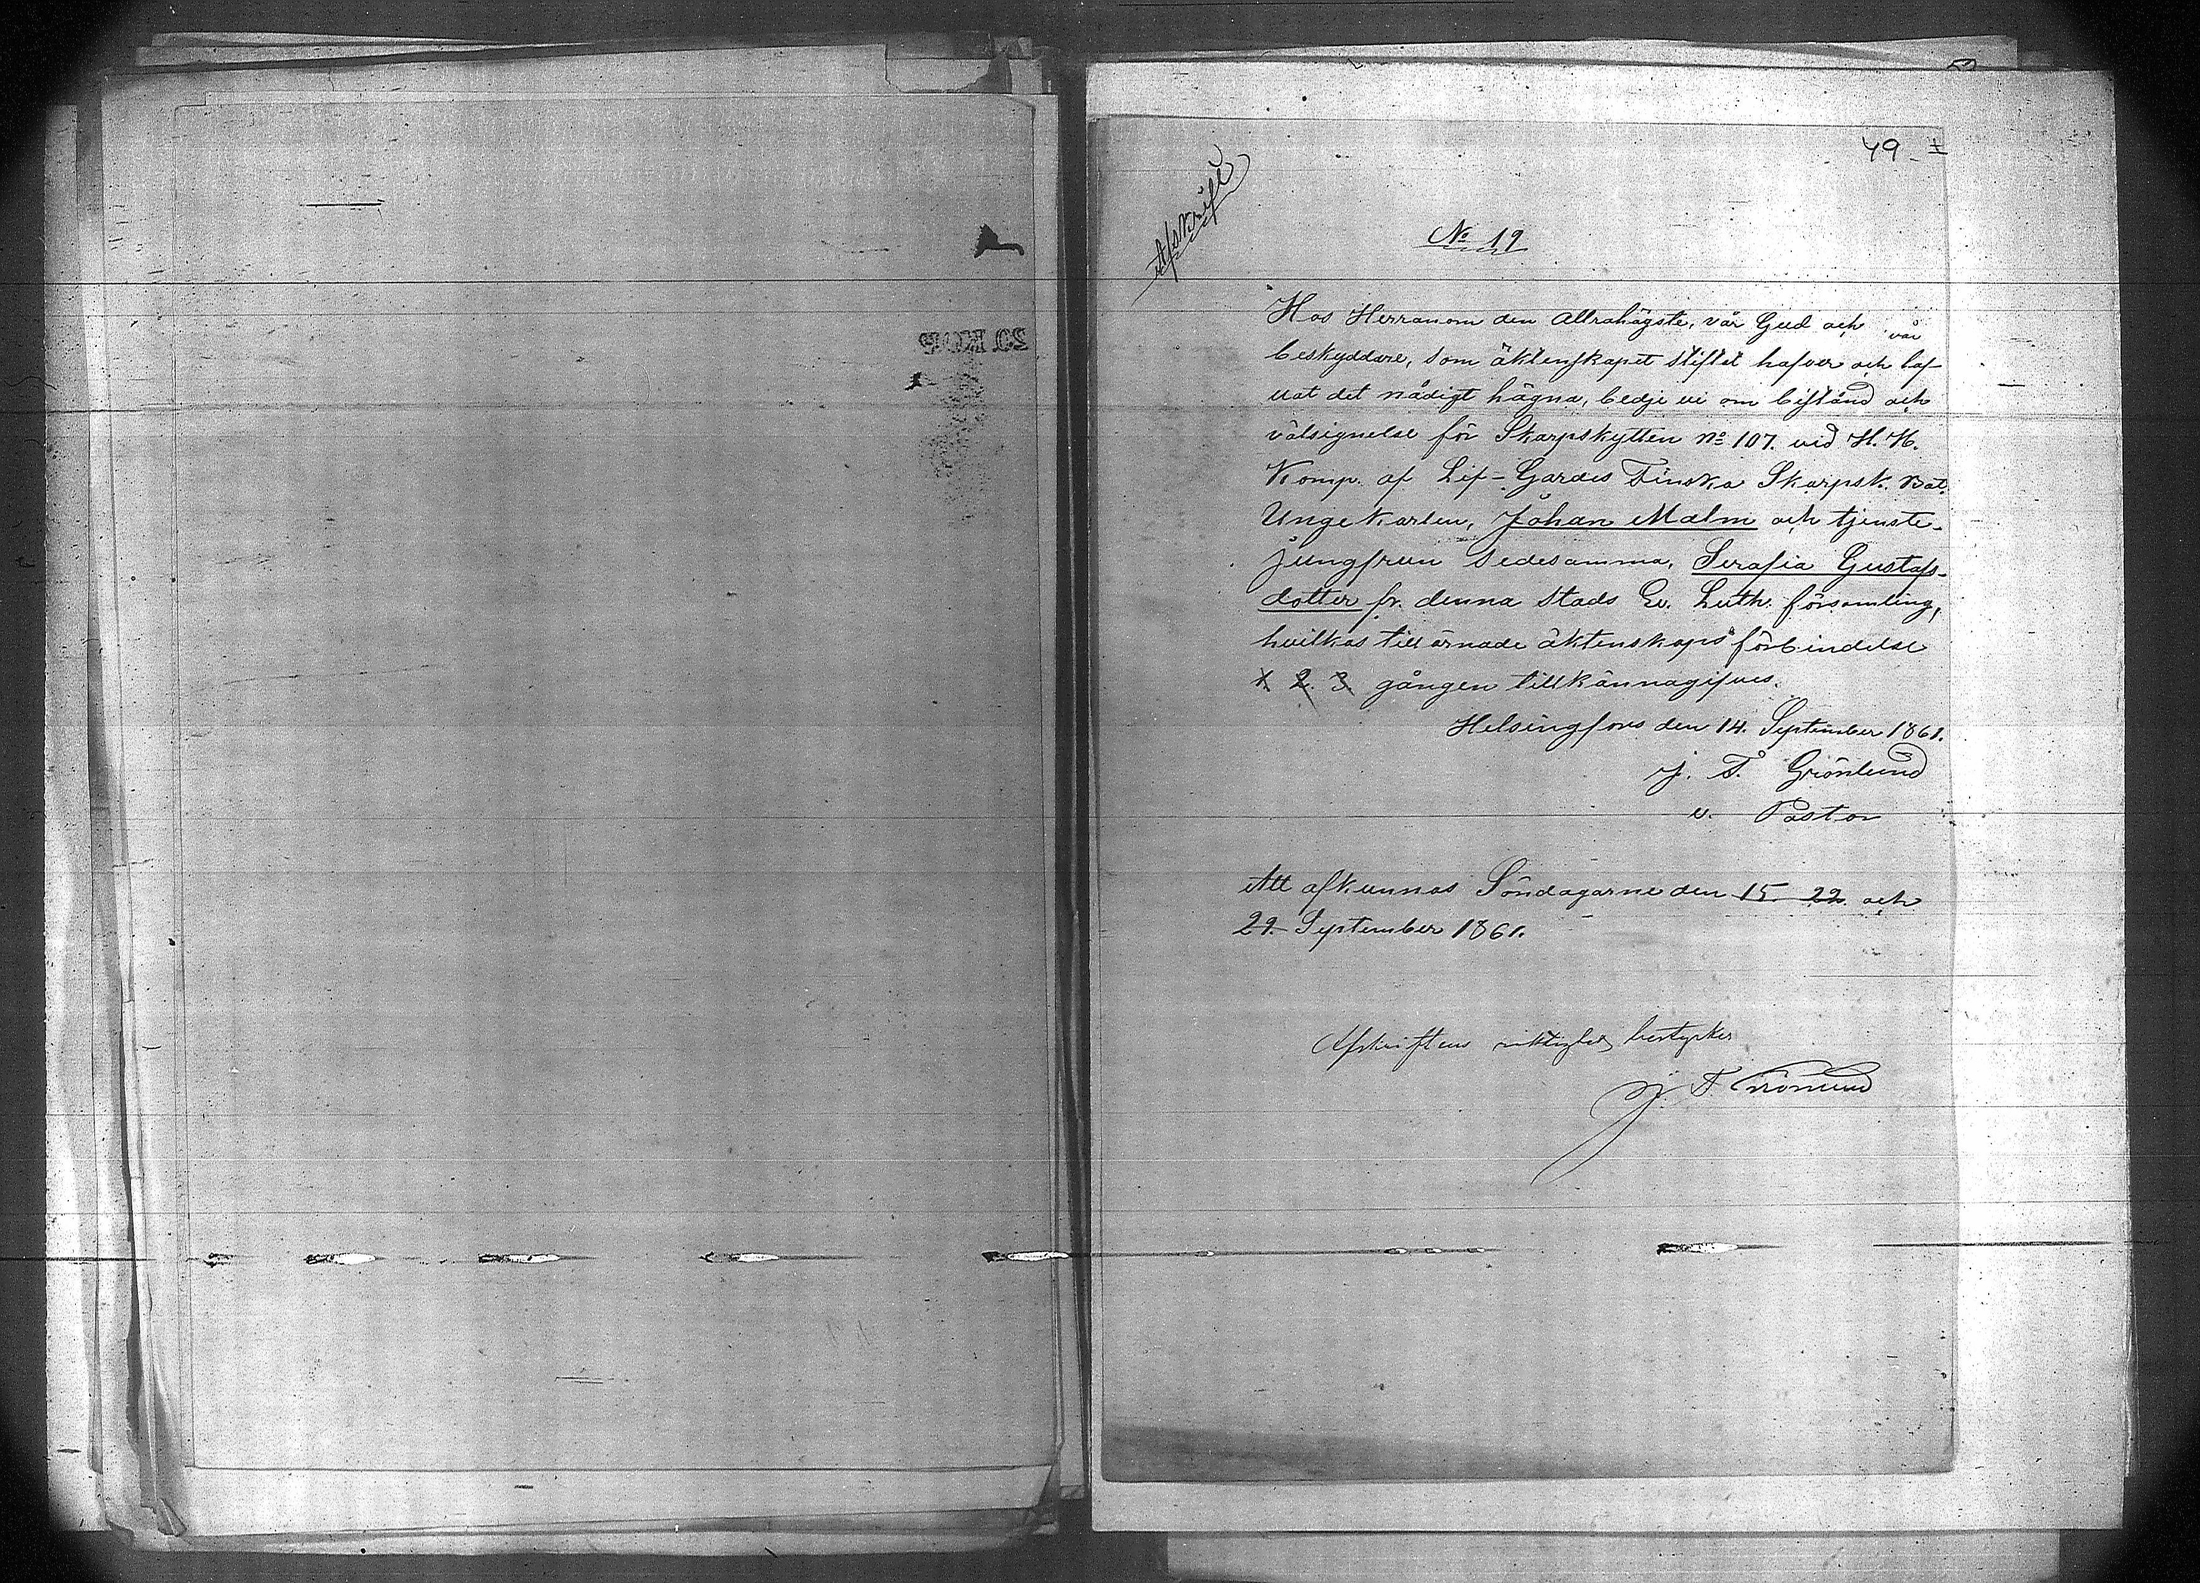 49
Afskrift
No 19
Hos Herranom den Allrahögste, vår Gud och vår
beskyddare, som äktenskapet stiftat hafver och låf-
vat det nådigt hägna, bedje vi om bistånd och
välsignelse för Skarpskytten No 107. vid H. K.
Komp. af Lif-Gardes Finska Skarpsk. Bat.
Ungekarlen, Johan Malm och tjenste-
jungfrun sedesamma, Serafia Gustafs-
dotter fr. denna stads Ev. Luth. församling,
hvilkas tillärnade äktenskaps förbindelse
1. 2. 3 gången tillkännagifves.
Helsingfors den 14. September 1861.
J. F. Grönlund
v. Pastor
Att afkunnas Söndagarne den 15. 22. och
29. September 1861.
Afskriftens riktighet bestyrker
J. F. Grönlund